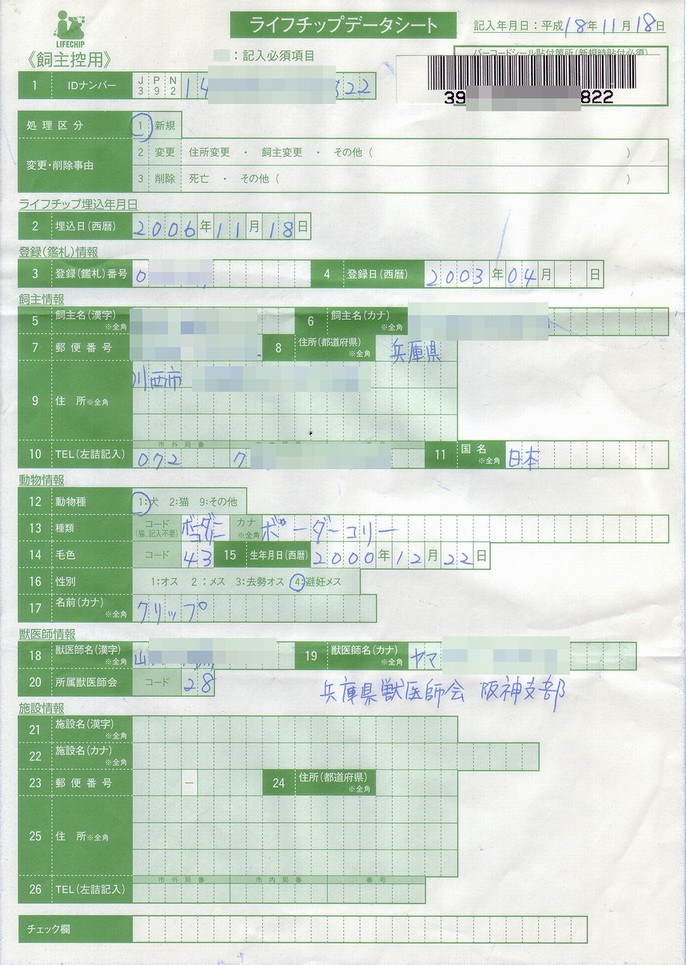 LIFECHIP
ライフチップデータシート
記入年月日:平成18年11月18日
《飼主控用》
:記入必須項目
バーコードシール貼付箇所(新規時貼付必須)
1 IDナンバー J3 P9 N2 14 22
39 822
処理区分 1 新規
変更・削除事由 2 変更 住所変更 ・ 飼主変更 ・ その他( )
3 削除 死亡 ・ その他( )
ライフチップ埋込年月日
2 埋込日(西暦) 2006年11月18日
登録(鑑札)情報
3 登録(鑑札)番号 0 4 登録日(西暦) 2003年04月 日
飼主情報
5 飼主名(漢字) ※全角 6 飼主名(カナ) ※全角
7 郵便番号 8 住所(都道府県) ※全角 兵庫県
9 住 所※全角 川西市
市外局番
10 TEL(左詰記入) 072 7 11 国名 ※全角 日本
動物情報
12 動物種 1:犬 2:猫 9:その他
13 種類 コード (猫、記入不要) カナ ※全角 ボーダーコリー
14 毛色 コード 43 15 生年月日(西暦) 2000年12月22日
16 性別 1:オス 2:メス 3:去勢オス 4:避妊メス
17 名前(カナ) ※全角 クリップ
獣医師情報
18 獣医師名(漢字) ※全角 山 19 獣医師名(カナ) ※全角 ヤマ
20 所属獣医師会 コード 28 兵庫県獣医師会 阪神支部
施設情報
21 施設名(漢字) ※全角
22 施設名(カナ) ※全角
23 郵便番号 − 24 住所(都道府県) ※全角
25 住 所※全角
市外局番 市内局番 番号
26 TEL(左詰記入)
チェック欄